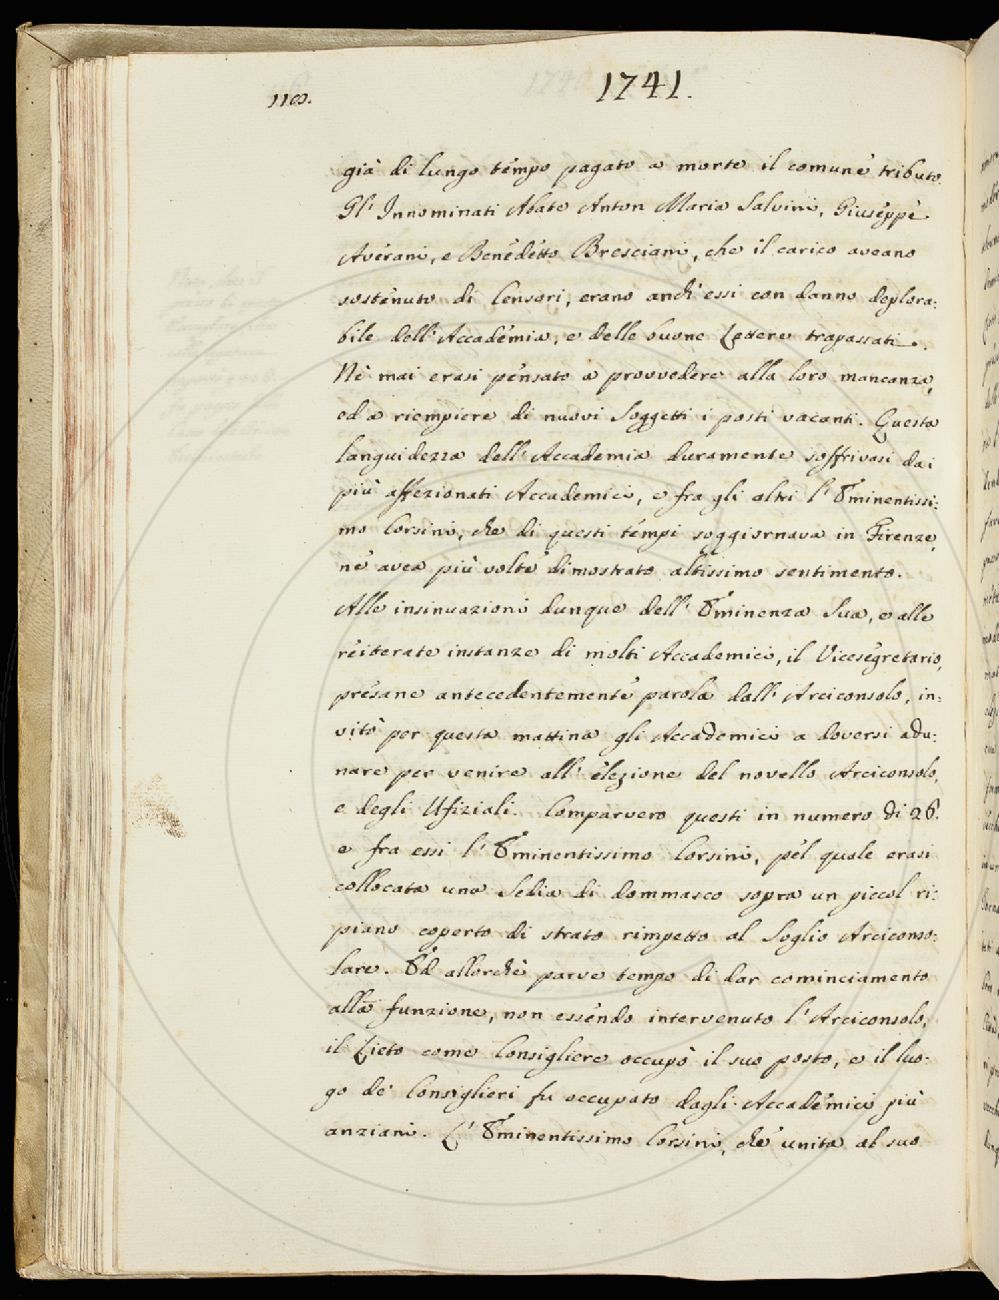 110.
1741.
già di lungo tempo pagato a morte il comune tributo.
Gl' Innominati Abate Anton Maria Salvini, Giuseppe
Averani, e Benedetto Bresciani, che il carico aveano
sostenuto di Censori, erano anch' essi con danno deplora:
bile dell' Accademia, e delle buone Lettere trapassati.
Nè mai erasi pensato a provvedere alla loro mancanza,
ed a riempiere di nuovi Soggetti i posti vacanti. Questa
languidezza dell' Accademia duramente soffrivasi dai
più affezionati Accademici, e fra gli altri l' Eminentissi:
mo Corsini, che di questi tempi soggiornava in Firenze,
ne avea più volte dimostrato altissimo sentimento.
Alle insinuazioni dunque dell' Eminenza Sua, e alle
reiterate instanze di molti Accademici, il Vicesegretario,
presane antecedentemente parola dall' Arciconsolo, in:
vitò per questa mattina gli Accademici a doversi adu:
nare per venire all' elezione del novello Arciconsolo,
e degli Ufiziali. Comparvero questi in numero di 26.
e fra essi l' Eminentissimo Corsini, pel quale erasi
collocata una Sedia di dommasco sopra un piccol ri:
piano coperto di strato rimpetto al Soglio Arciconso:
lare. Ed allorchè parve tempo di dar cominciamento
alla funzione, non essendo intervenuto l' Arciconsolo,
il Lieto come Consigliere occupò il suo posto, e il luo:
go de' Consiglieri fu occupato dagli Accademici più
anziani. L' Eminentissimo Corsini, che unita al suo